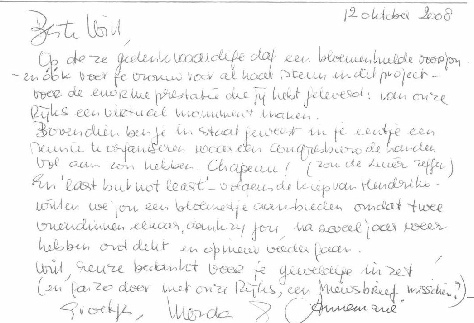 12 oktober 2008
Beste Wil,
Op deze gedenkwaardige dat een bloemenhulde voor jou
- en ook voor je vrouw voor al haar steun in dit project -
voor de enorme prestatie die jij hebt geleverd: van onze
Rijks een virtual monument maken.
Bovendien ben je in staat geweest in je eentje een
reunie te organiseren waar een congresbureau de handen
vol aan zou hebben. Chapeau! (zou de Leeuw zeggen)
En 'last but not least' - volgens de knip van Hendrike -
willen we jou een bloemetje aanbieden omdat twee
vriendinnen elkaar, dankzij jou, na zoveel jaar weer
hebben ontdekt en opnieuw
Wil, heuze bedankt voor je geweldige inzet
(en ga zo door met onze Rijks, een Nieuwsbrief misschien?) -
Groetjes, Monda & Annemarie